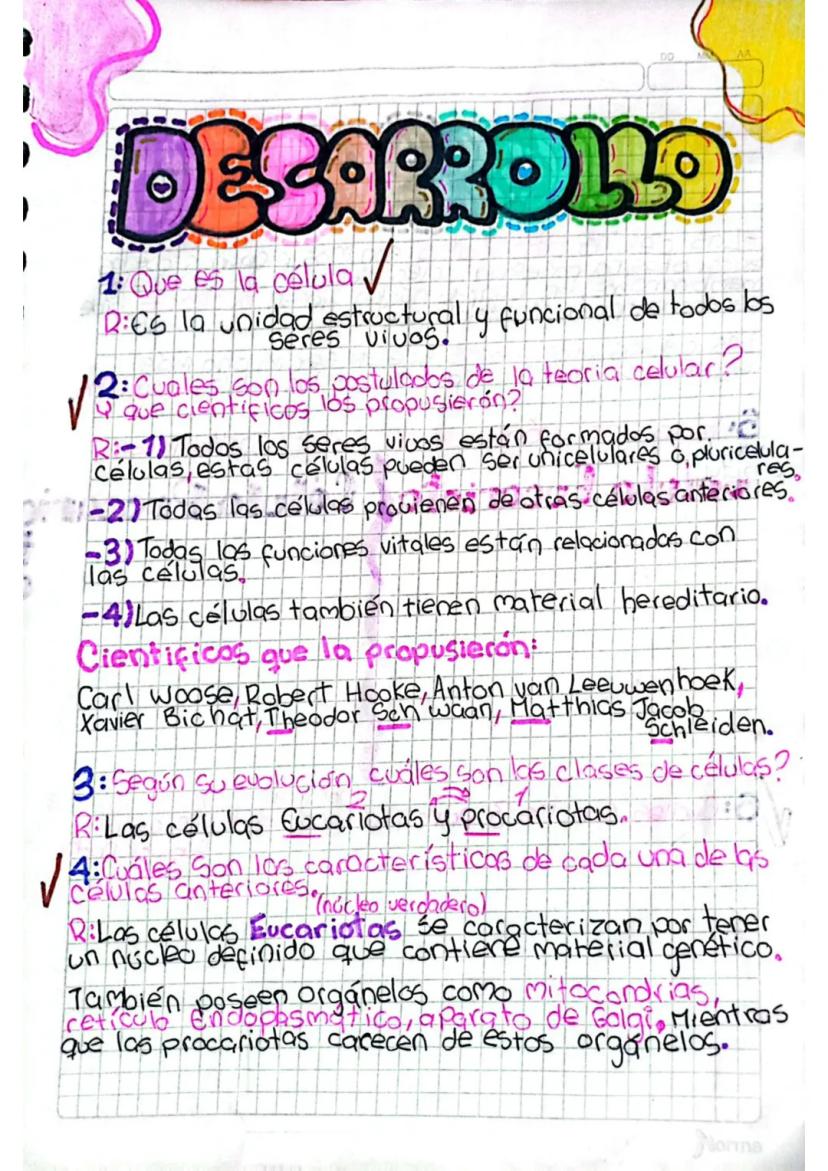 DD MM AA
DESARROLLO
1: Que es la célula ✓
R: Es la unidad estructural y funcional de todos los
seres vivos.
2: Cuales son los postulados de la teoria celular?
y que cientificos los propusierón?
R:-1) Todos los seres vivos están formados por
células, estas células pueden ser unicelulares o pluricelula-
res.
-2) Todas las células provienen de otras células anteriores.
-3) Todas las funciones vitales están relacionadas con
las células.
-4) Las células también tienen material hereditario.
Cientificos que la propusierón:
Carl Woose, Robert Hooke, Anton van Leeuwenhoek,
Xavier Bichat, Theodor Schwaan, Matthias Jacob
Schleiden.
3: Según su evolución cuáles son las clases de células?
2 1
R: Las células Eucariotas y procariotas.
4: Cuáles son las características de cada una de las
células anteriores.
(núcleo verdadero)
R: Las células Eucariotas se caracterizan por tener
un núcleo definido que contiene material genético.
También poseen orgánelos como mitocondrias,
retículo Endoplasmático, aparato de Golgi. Mientras
que las procariotas carecen de estos orgánelos.
Norma